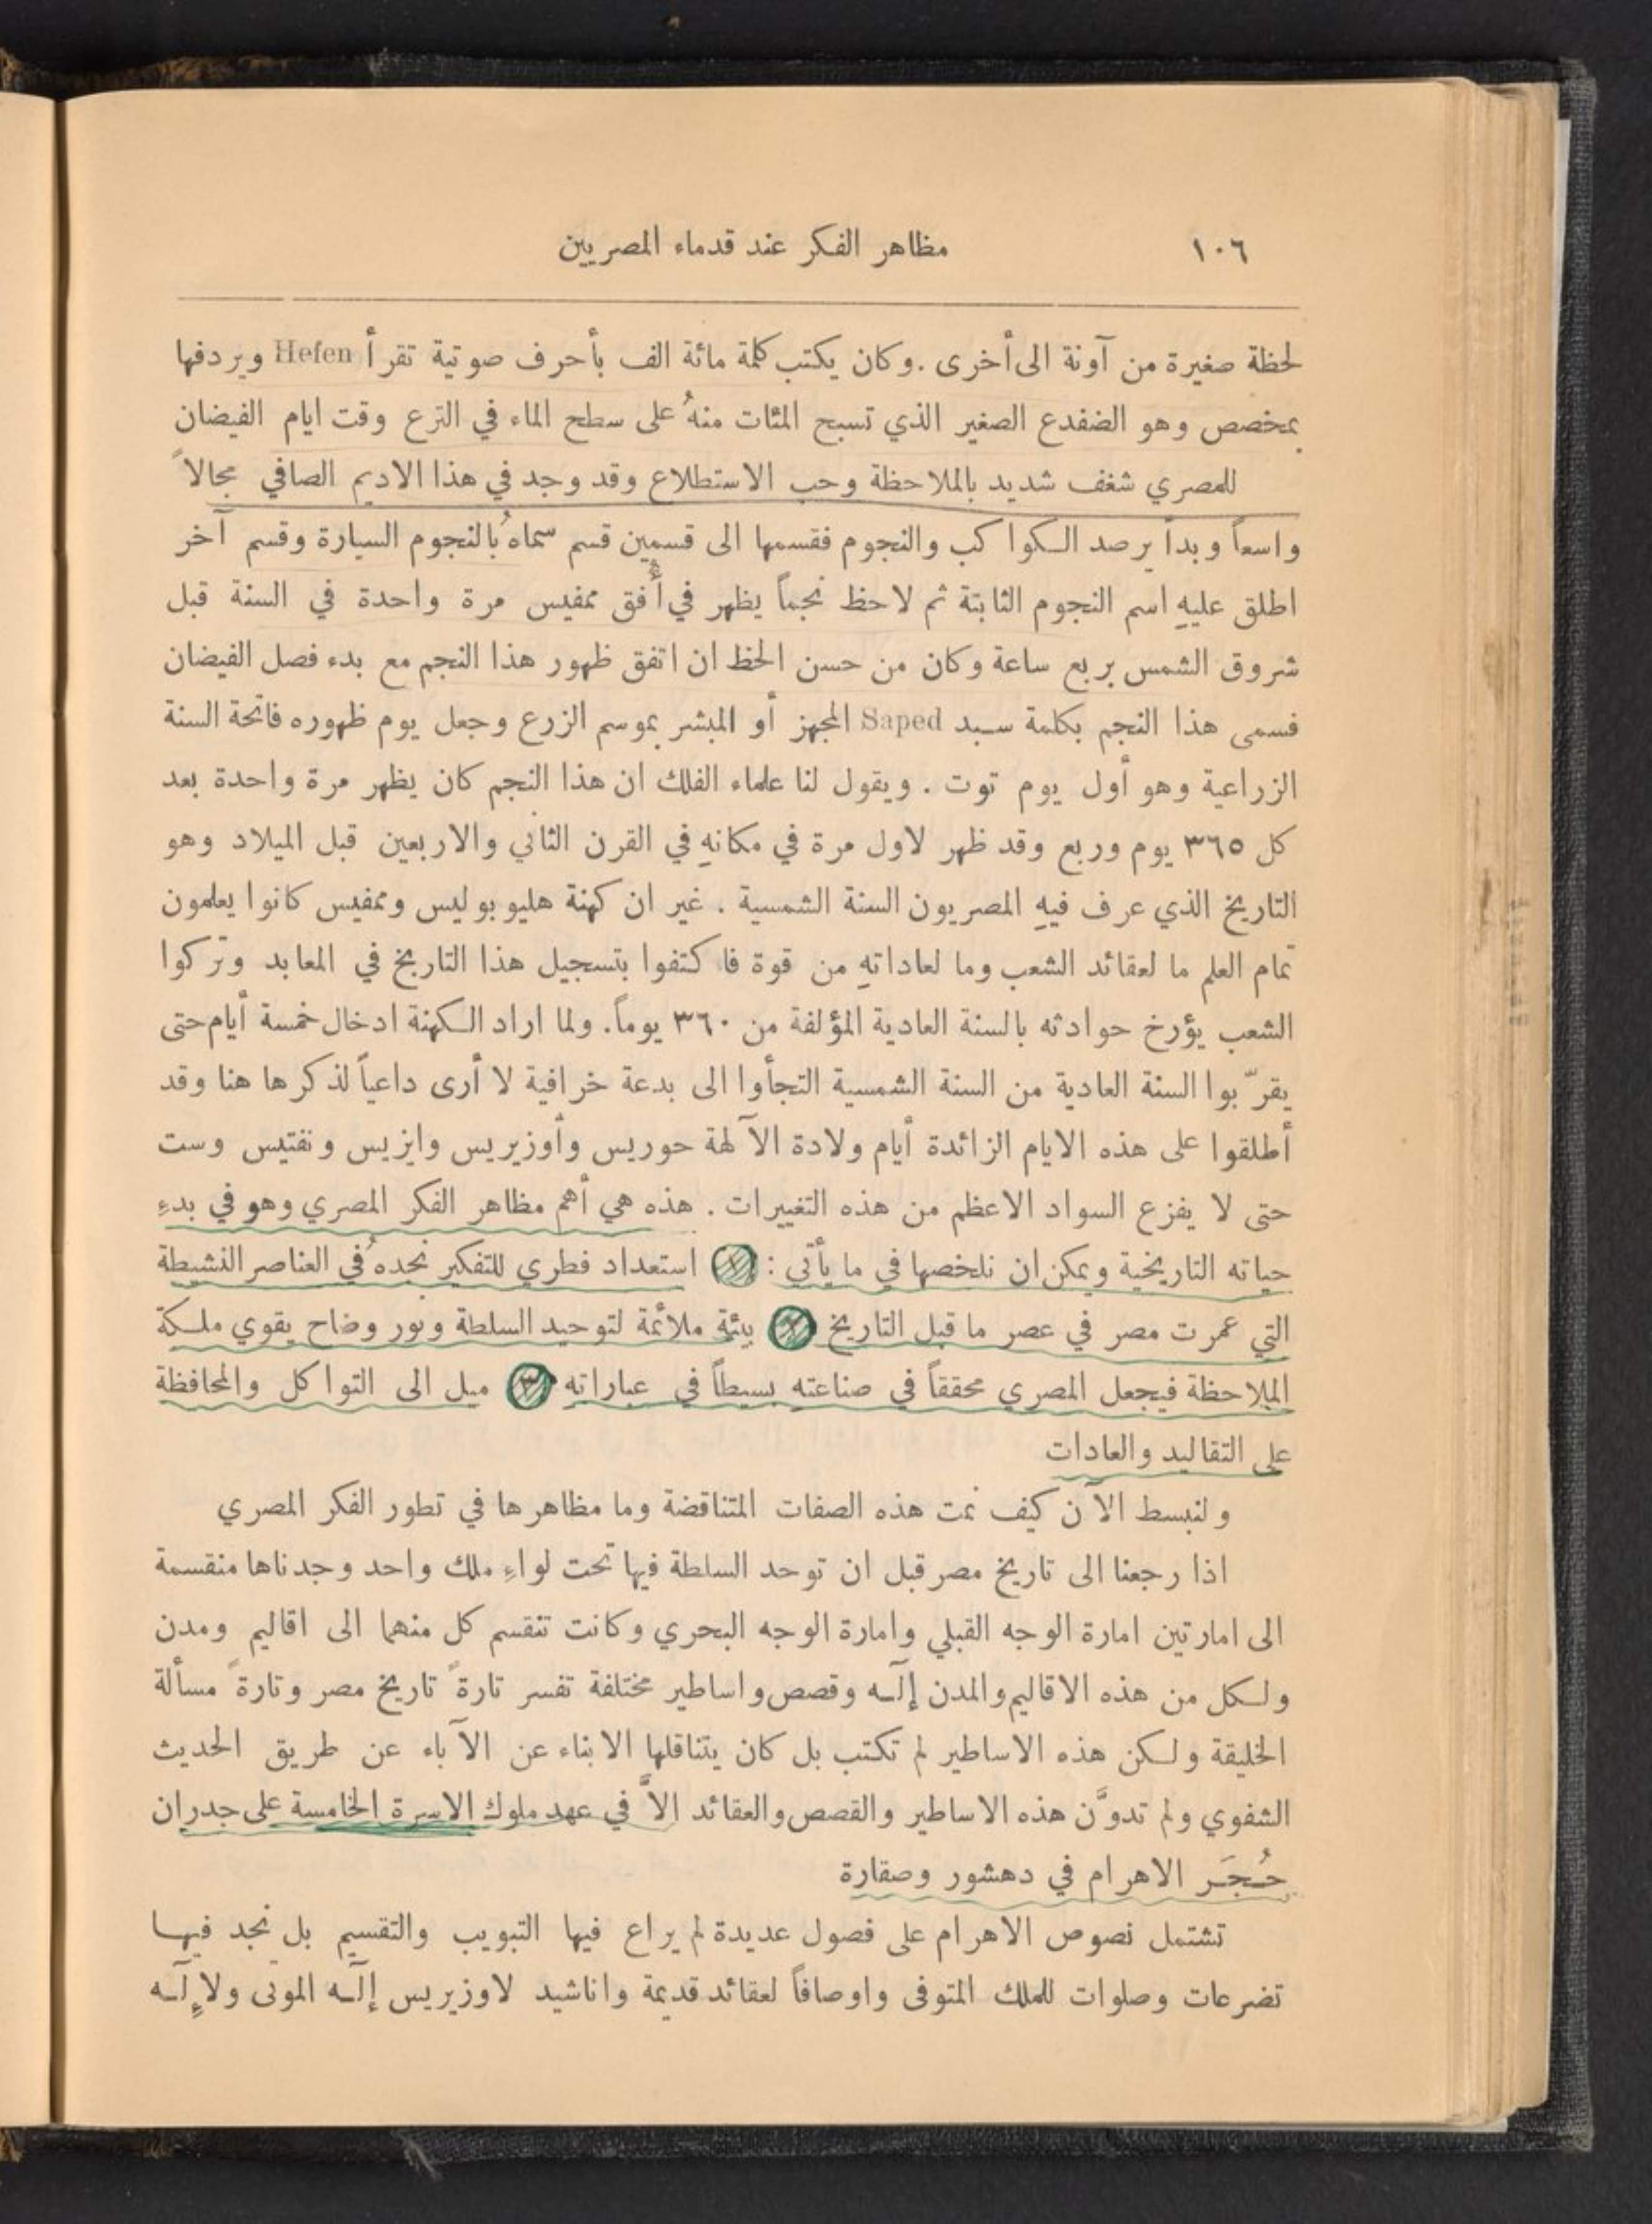 ١٠٦ مظاهر الفكر عند قدماء المصريين
لحظة صغيرة من آونة الى أخرى . وكان يكتب كلمة مائة الف بأحرف صوتية تقرأ Hefen ويردفها
بمخصص وهو الضفدع الصغير الذي تسبح المئات منهُ على سطح الماء في الترع وقت ايام الفيضان
للمصري شغف شديد بالملاحظة وحب الاستطلاع وقد وجد في هذا الاديم الصافي مجالاً
واسعاً وبدأ برصد الكواكب والنجوم فقسمها الى قسمين قسم سماهُ بالنجوم السيارة وقسم آخر
اطلق عليهِ اسم النجوم الثابتة ثم لاحظ نجماً يظهر في أفق ممفيس مرة واحدة في السنة قبل
شروق الشمس بربع ساعة وكان من حسن الحظ ان اتفق ظهور هذا النجم مع بدء فصل الفيضان
فسمى هذا النجم بكلمة سبد Saped المجهز أو المبشر بموسم الزرع وجعل يوم ظهوره فاتحة السنة
الزراعية وهو أول يوم توت . ويقول لنا علماء الفلك ان هذا النجم كان يظهر مرة واحدة بعد
كل ٣٦٥ يوم وربع وقد ظهر لاول مرة في مكانهِ في القرن الثاني والاربعين قبل الميلاد وهو
التاريخ الذي عرف فيهِ المصريون السنة الشمسية . غير ان كهنة هليوبوليس وممفيس كانوا يعلمون
تمام العلم ما لعقائد الشعب وما لعاداتهِ من قوة فاكتفوا بتسجيل هذا التاريخ في المعابد وتركوا
الشعب يؤرخ حوادثه بالسنة العادية المؤلفة من ٣٦٠ يوماً. ولما اراد الكهنة ادخال خمسة أيام حتى
يقرّبوا السنة العادية من السنة الشمسية التجأوا الى بدعة خرافية لا أرى داعياً لذكرها هنا وقد
أطلقوا على هذه الايام الزائدة أيام ولادة الآلهة حوريس وأوزيريس وايزيس ونفتيس وست
حتى لا يفزع السواد الاعظم من هذه التغييرات . هذه هي أهم مظاهر الفكر المصري وهو في بدءِ
حياته التاريخية ويمكن ان نلخصها في ما يأتي : (١) استعداد فطري للتفكير نجدهُ في العناصر النشيطة
التي عمرت مصر في عصر ما قبل التاريخ (٢) بيئة ملائمة لتوحيد السلطة ونور وضاح يقوي ملكة
الملاحظة فيجعل المصري محققاً في صناعته بسيطاً في عباراته (٣) ميل الى التواكل والمحافظة
على التقاليد والعادات
ولنبسط الآن كيف نمت هذه الصفات المتناقضة وما مظاهرها في تطور الفكر المصري
اذا رجعنا الى تاريخ مصر قبل ان توحد السلطة فيها تحت لواءِ ملك واحد وجدناها منقسمة
الى امارتين امارة الوجه القبلي وامارة الوجه البحري وكانت تنقسم كل منهما الى اقاليم ومدن
ولكل من هذه الاقاليم والمدن إلٓه وقصص واساطير مختلفة تفسر تارةً تاريخ مصر وتارةً مسألة
الخليقة ولكن هذه الاساطير لم تكتب بل كان يتناقلها الابناء عن الآباء عن طريق الحديث
الشفوي ولم تدوَّن هذه الاساطير والقصص والعقائد الاَّ في عهد ملوك الاسرة الخامسة على جدران
حُجَر الاهرام في دهشور وصقارة
تشتمل نصوص الاهرام على فصول عديدة لم يراع فيها التبويب والتقسيم بل نجد فيها
تضرعات وصلوات للملك المتوفى واوصافاً لعقائد قديمة واناشيد لاوزيريس إلٓه الموتى ولاِلٓه